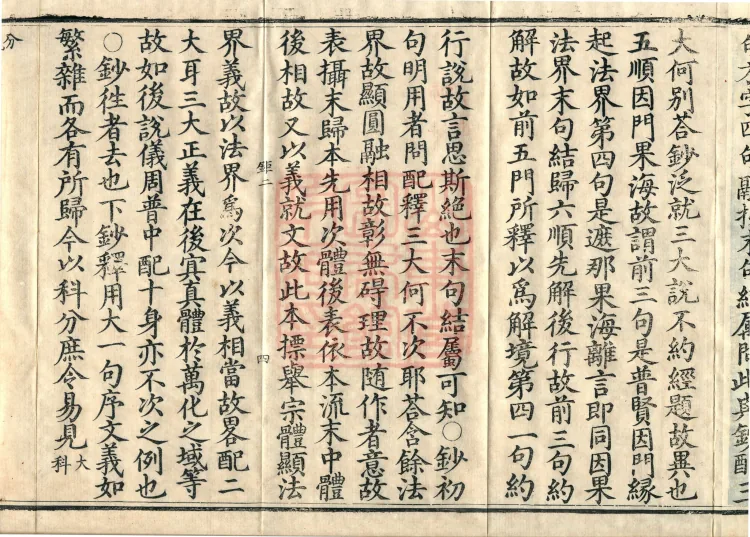 大何別荅鈔泛就三大說不約經題故異也
五順因門果海故謂前三句是普賢因門緣
起法界第四句是遮那果海離言即同因果
法界末句結歸六順先解後行故前三句約
解故如前五門所釋以爲解境第四一句約
行說故言思斯絶也末句結屬可知○鈔初
句明用者問配釋三大何不次耶荅含餘法
界故顯圓融相故彰無碍理故随作者意故
表攝末歸本先用次體後表依本流末中體
後相故又以義就文故此本標舉宗體顯法
鉅二
四
界義故以法界爲次今以義相當故畧配二
大耳三大正義在後㝠真體於萬化之域等
故如後說儀周普中配十身亦不次之例也
○鈔徃者去也下鈔釋用大一句序文義如
繁雜而各有所歸今以科分庶令易見
大科
分